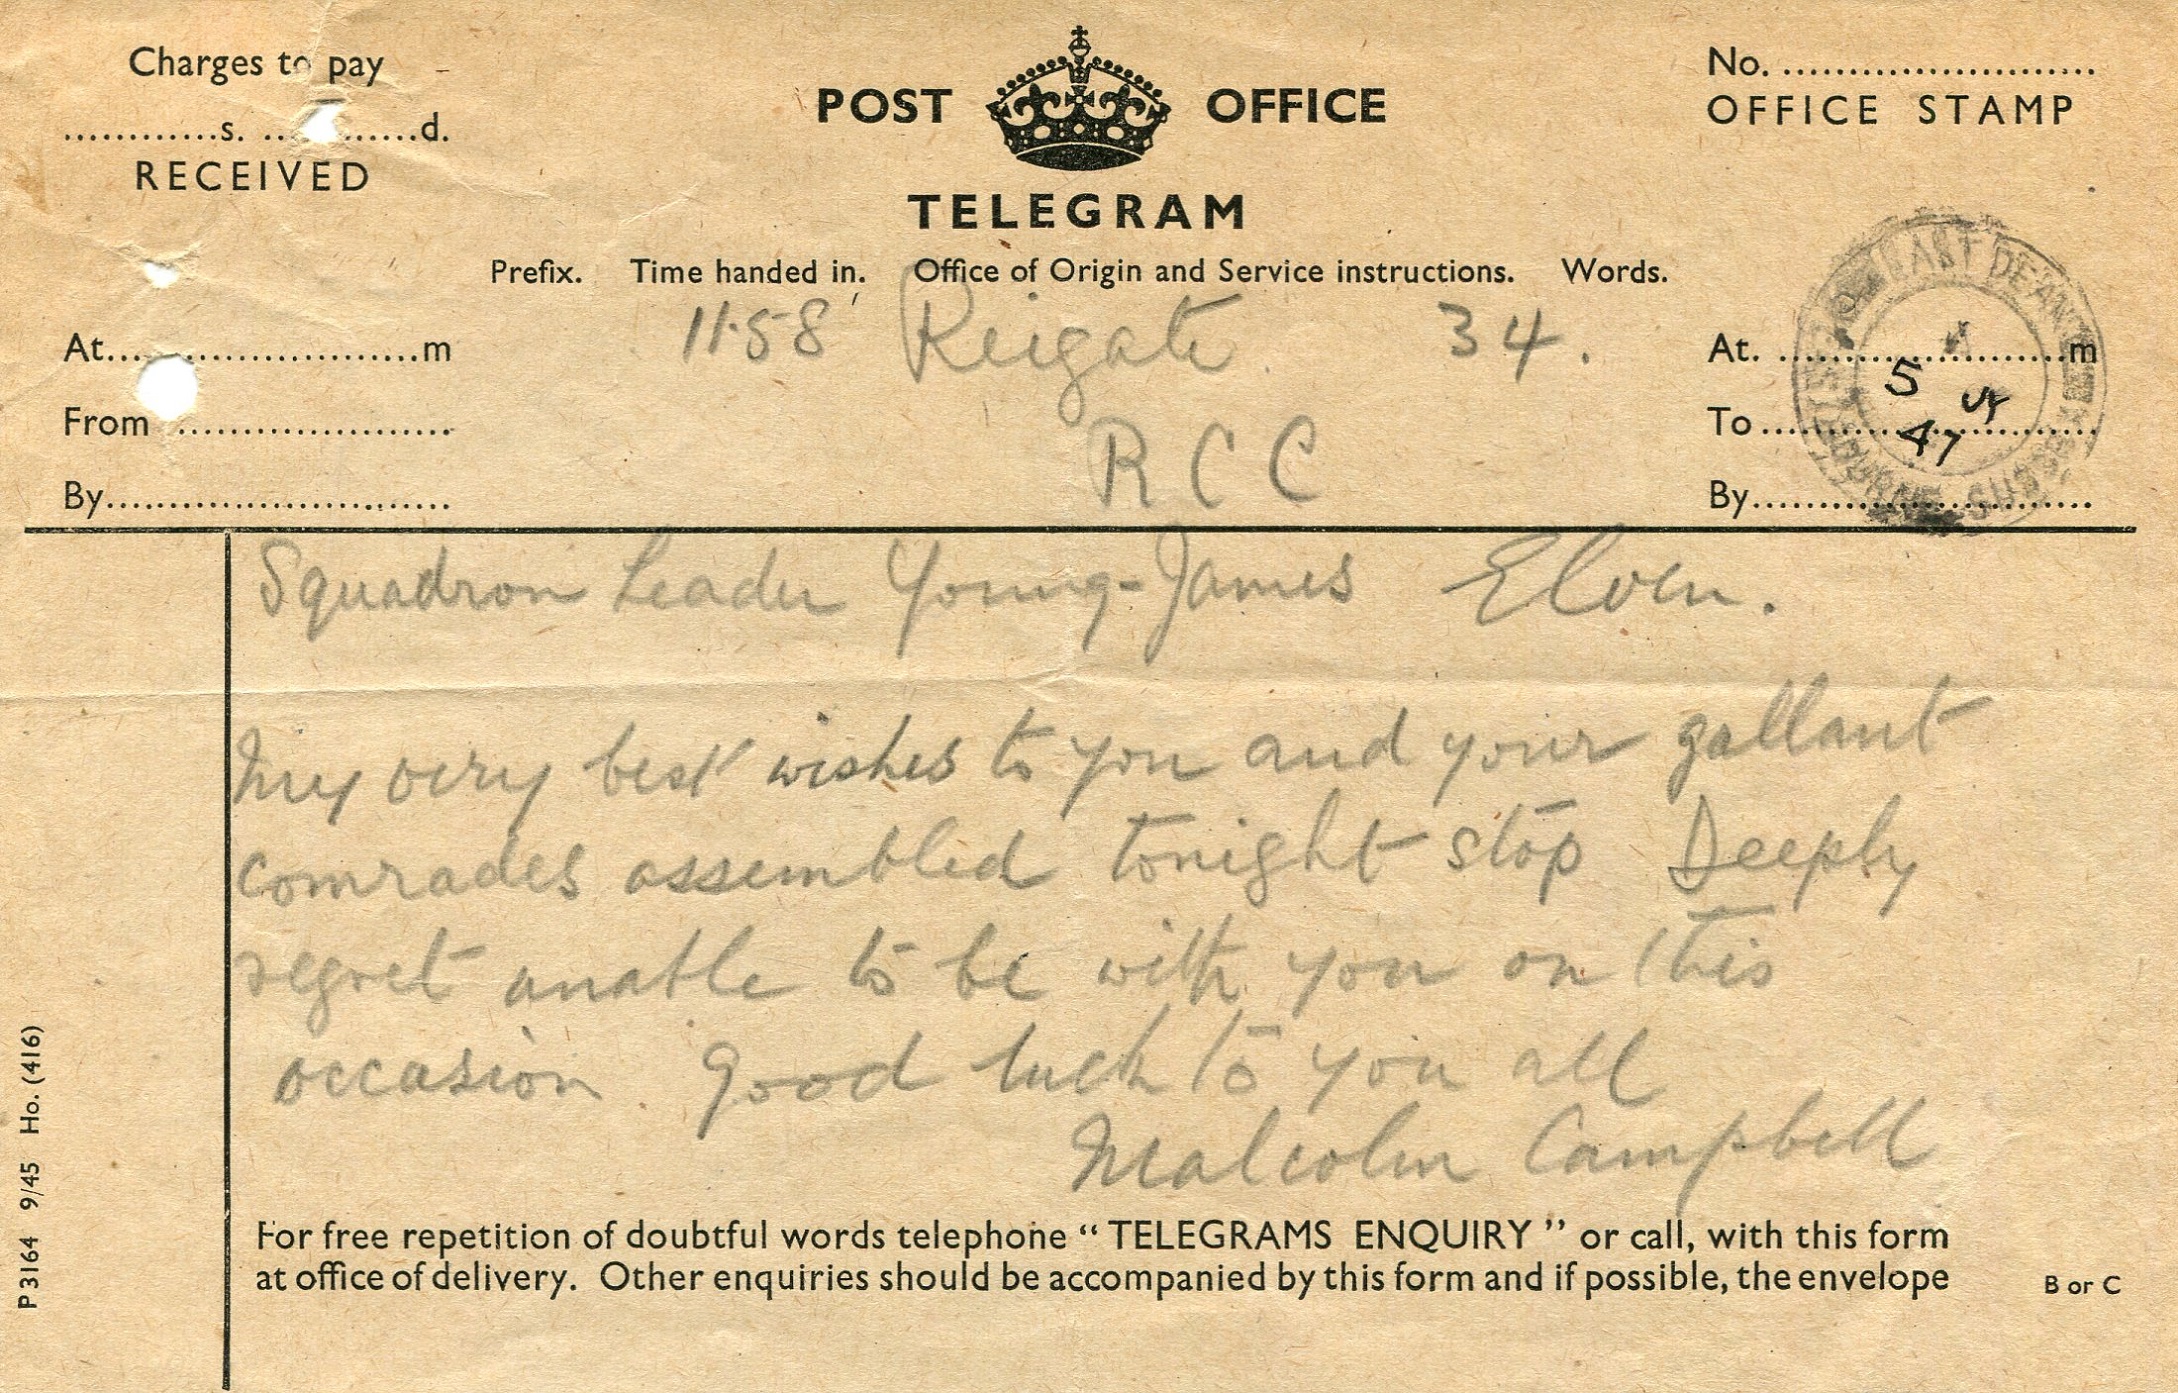 Charges to pay
............s. ............d.
RECEIVED
POST OFFICE
TELEGRAM
No. ........................
OFFICE STAMP
Prefix. Time handed in. Office of Origin and Service instructions. Words.
11.58 Reigate 34.
RCC
At........................m
From .....................
By...........................
At. ......................m
To..........................
By..........................
EAST DEAN
EASTBOURNE SUSSEX
5
47
Squadron Leader Young-James
My very best wishes to you and your gallant
comrades assembled tonight stop Deeply
regret unable to be with you on this
occasion. Good luck to you all
Malcolm Campbell
For free repetition of doubtful words telephone “TELEGRAMS ENQUIRY” or call, with this form
at office of delivery. Other enquiries should be accompanied by this form and if possible, the envelope
B or C
P3164 9/45 Ho. (416)